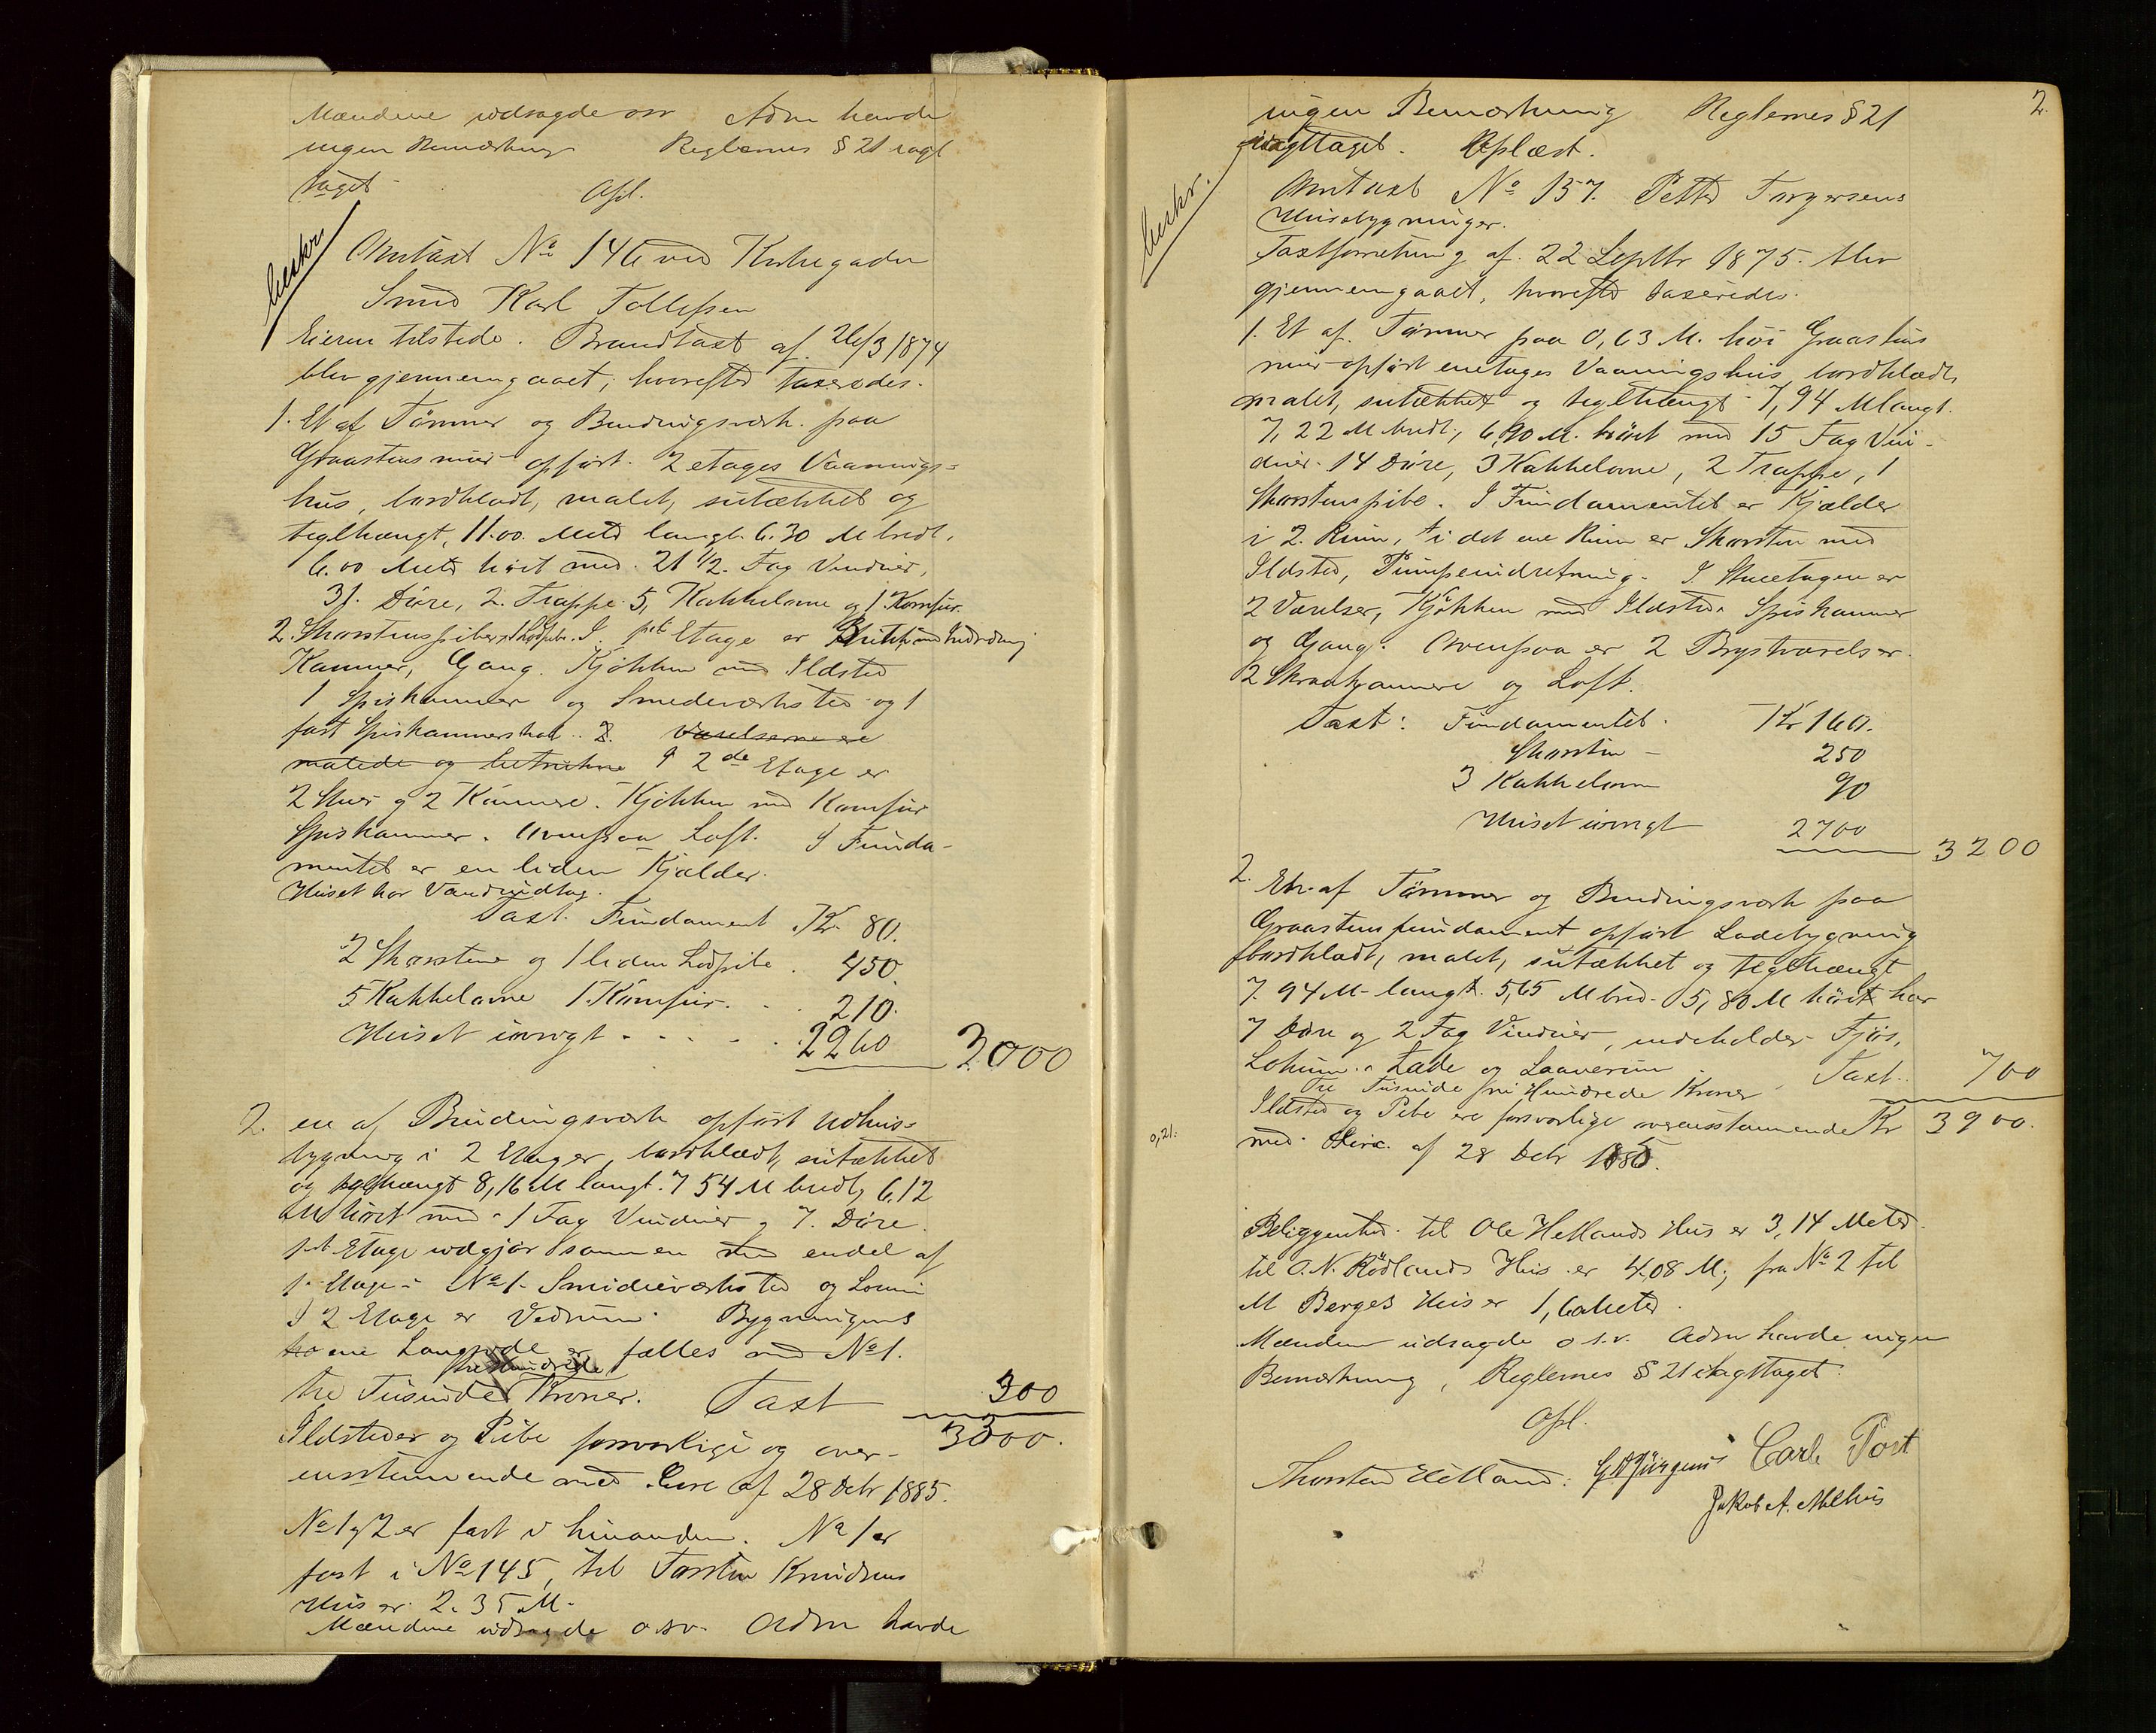 Mændene udsagde osv Adm havde
ingen Bemærkning Reglernes § 21 iagt
taget Opl.
beskr.
Omtaxt No 146 ved Kirkegaden
Smed Karl Tollefsen
Eieren tilstede. Brandtaxt af 26/3 1874
blev gjennemgaaet, hvorefter taxeredes.
1. Et af Tømmer og Bindingsværk paa
Graastensmur opført 2 etages Vaanings-
hus, bordklædt, malet, sutækket og
teglhængt, 11.00 Meter langt 6.30 M bredt,
6.00 Meter høit med 21 1/2 Fag Vinduer,
31 Døre, 2 Trappe 5, Kakkelovne og 1 Komfur
2 Skorstenspiber I Etage er Butik med Indredning
Kammer, Gang. Kjøkken med Ildsted
1 Spiskammer og Smedeværksted og 1
fast Spiskammerskab 2. Værelserne ere
malede og betrukne I 2de Etage er
2 Stuer og 2 Kamere. Kjøkken med Komfur
Spiskammer. Ovenpaa Loft. I Funda-
mentet er en liden Kjælder.
Huset har Vandindlag.
Taxt. Fundament Kr 80.
2 Skorstene og 1 liden Lodpibe . 450.
5 Kakkelovne 1 Komfur . . 210.
Huset iøvrigt . . . . . 2260 3000
2. en af Bindingsværk opført Udhus-
bygning i 2 Etager, bordklædt, sutækket
og teglhængt 8,16 M langt. 7 54 M bredt, 6,12
M høit med 1 Fag Vinduer og 7 Døre.
1ste Etage udgjør sammen med endel af
1 Etage i No 1 Smidieværksted og
I 2 Etage er Vedrum. Bygningens
ene Langside er fælles med No 1.
tre Hundrede
tre Tusinde Kroner. Taxt 300
3300.
Ildsteder og Pibe forsvarlige og over-
ensstemmende med Circ af 28 Debr 1885.
No 1 og 2 er fast i hinanden. No 1 er
fast i No 145, til Torsten Knudsens
Hus er 2.35 M.
Mændene udsagde osv. Adm havde
2.
ingen Bemærkning Reglernes § 21
iagttaget. Oplæst.
beskr.
Omtaxt No 157. Petter Torgersens
Husebygninger.
Taxtforretning af 22 Septbr 1875 blev
gjennemgaaet, hvorefter taxeredes.
1. Et af Tømmer paa 0,63 M. høi Graastens
mur opført enetages Vaaningshus, bordklædt,
malet, sutækket og teglhængt 7,94 M langt.
7,22 M bredt, 6,90 M. høit med 15 Fag Vin-
duer. 14 Døre, 3 Kakkelovne, 2 Trappe, 1
Skorstenspibe. I Fundamentet er Kjælder
i 2 Rum, i det ene Rum er Skorsten med
Ildsted, Pumpeindretning. I Stueetagen er
2 Værelser, Kjøkken med Ildsted Spiskammer
og Gang. Ovenpaa er 2 Brystværelser.
2 Skraakamere og Loft.
Taxt: Fundamentet . Kr 160.
Skorsten – 250
3 Kakkelovne 90
Huset iøvrigt 2700 3200
2. En af Tømmer og Bindingsværk paa
Graastensfundament opført Ladebygning
bordklædt, malet, sutækket og teglhængt
7.94 M langt. 5,65 M bred. 5,80 M høit har
7 Døre og 2 Fag Vinduer, indeholder Fjøs,
Lorum. Lade og Laaverum. Taxt.. 700
Tre Tusinde ni Hundrede Kroner
Ildsted og Pibe ere forsvarlige overensstemmende Kr 3900.
0,21.
med Circ. af 28 Debr 1885.
Beliggenhed til Ole Hetlands Hus er 3,14 Meter.
til O. N. Rødlands Hus er 4,08 M, fra No 2 til
M Berges Hus er 1,60 Meter.
Mændene udsagde o.s.v. Adm havde ingen
Bemærkning, Reglernes § 21 iagttaget.
Opl.
Thorsten Hetland. G W Jürgens Carl Post
Jakob A. Melhus